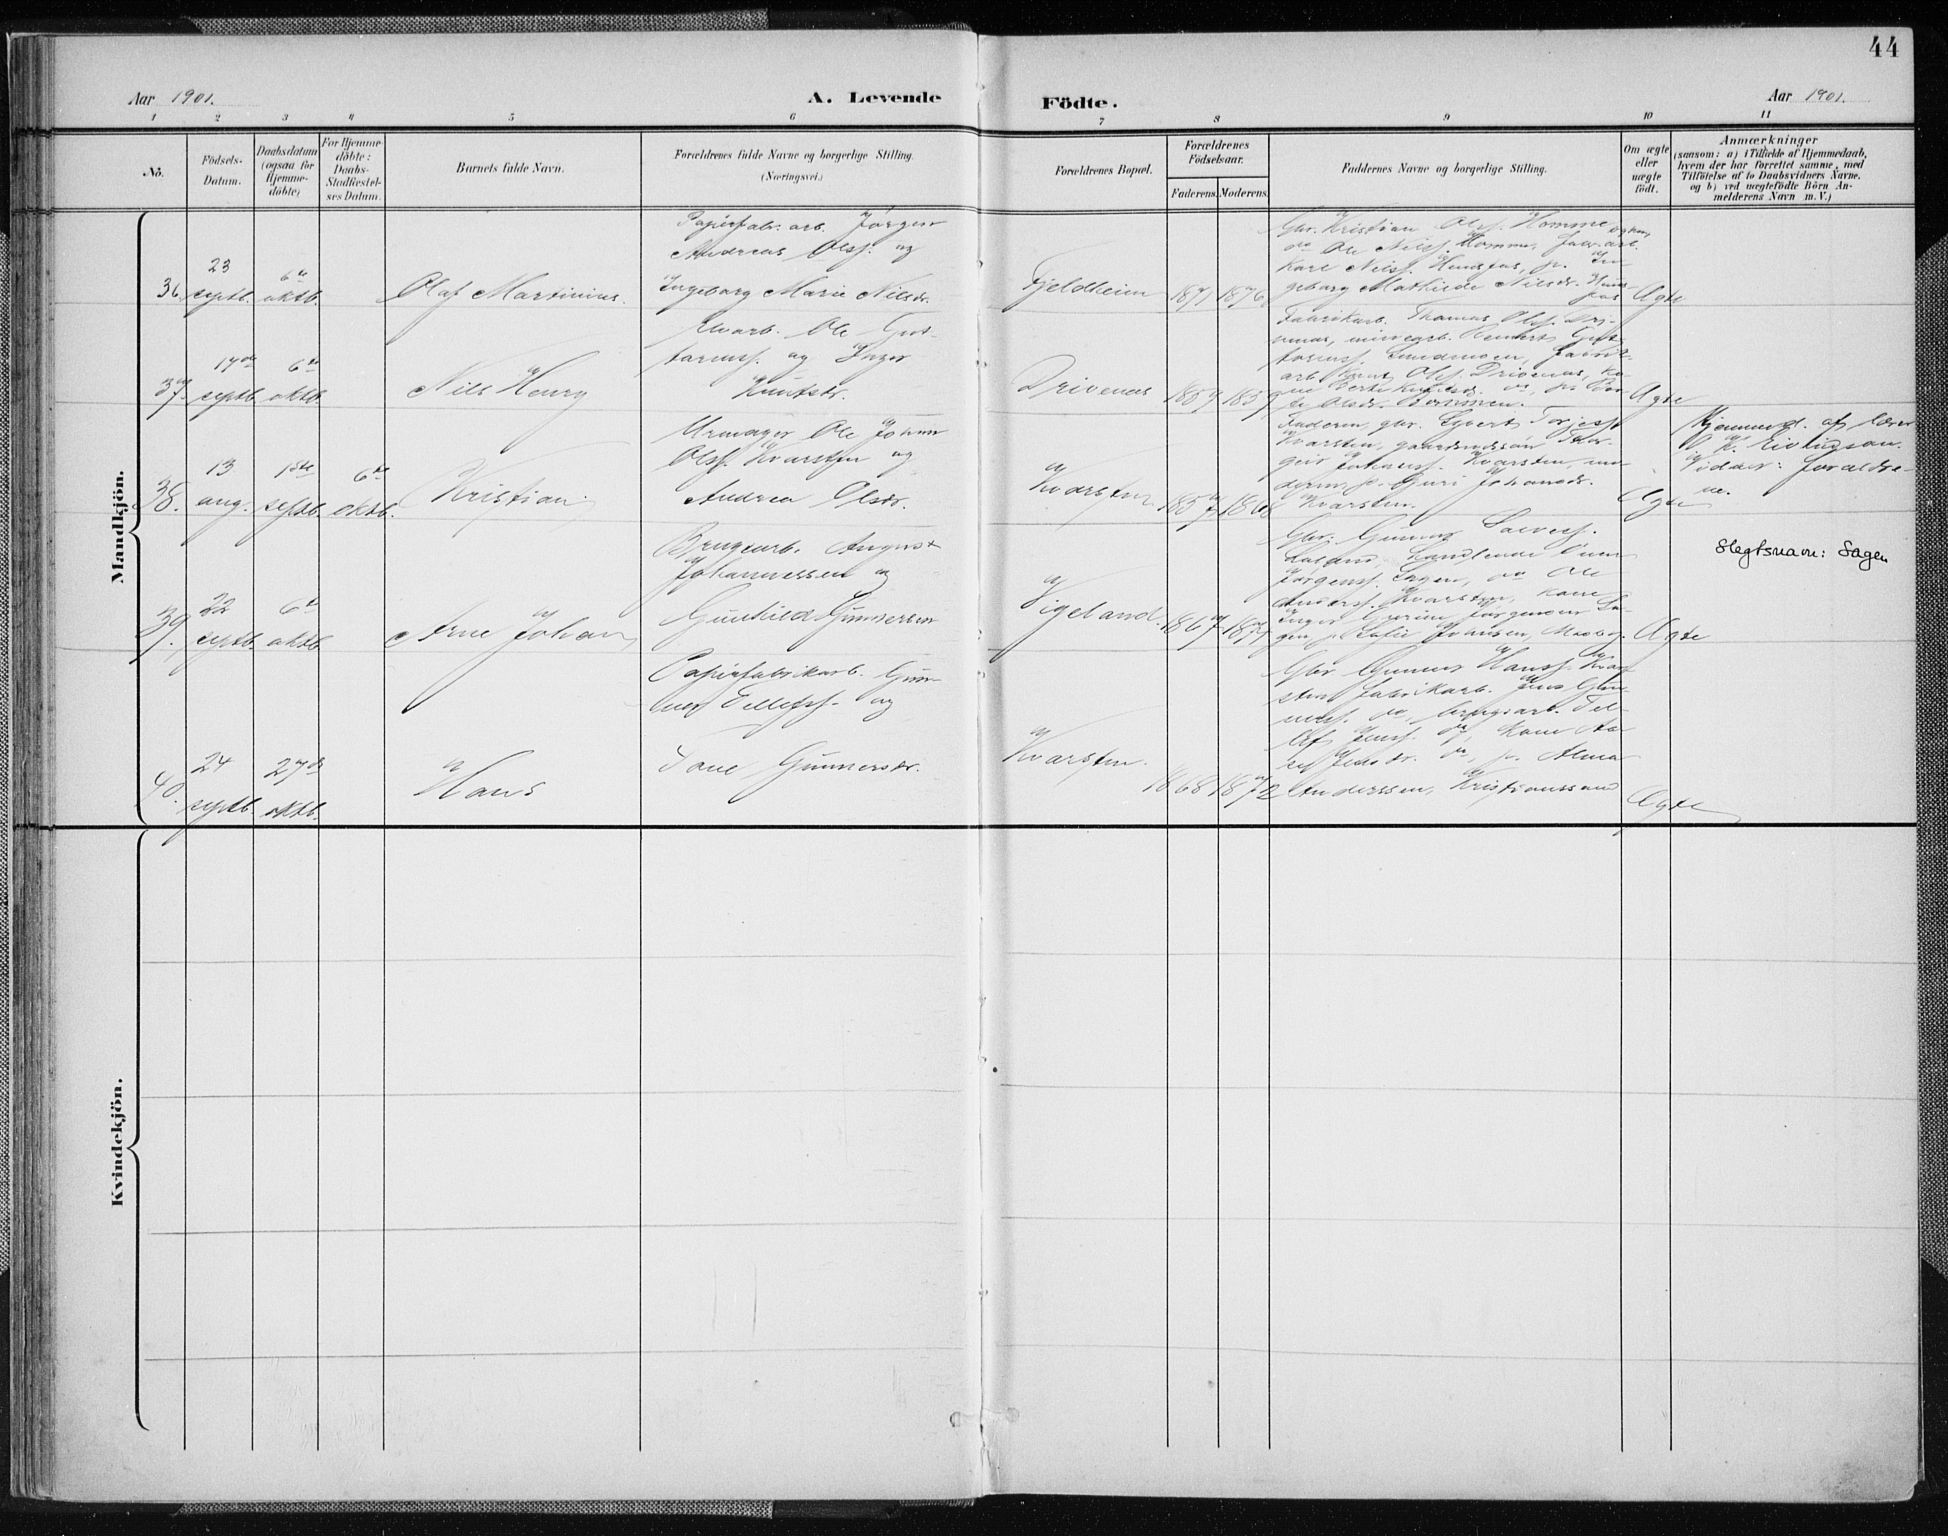 44
Aar 1901.
A. Levende
Födte.
Aar 1901.
1 2 3 4 5 6 7 8 9 10 11
No.
Födsels-
Datum.
Daabsdatum
(ogsaa for
Hjemme-
döbte)
For Hjemme-
döbte:
Daabs-
Stadfæstel-
ses Datum.
Barnets fulde Navn.
Forældrenes fulde Navne og borgerlige Stilling.
(Næringsvei.)
Forældrenes Bopæl.
Forældrenes
Födselsaar.
Faderens. Moderens.
Faddernes Navne og borgerlige Stilling.
Om ægte
eller
uægte
födt.
Anmærkninger
(saasom: a) i Tilfælde af Hjemmedaab,
hvem der har forrettet samme, med
Tilföielse af to Daabsvidners Navne.
og b) ved uægtefödte Börn An-
melderens Navn m. V.)
Mandkjön.
36.
23
septb.
6te
oktb.
Olaf Martinius.
Papirfabr. arb. Jørgen
Andreas Olss. og
Ingeborg Marie Nilsdr.
Fjeldheim
1871 1876
Gbr. Kristian Olss. Homme
do Ole Nilss. Homme, fabr. arb.
Karl Nilss. Hunsfos, p. In
geborg Mathilde Nilsdr. Huns
fos
Ægte
37.
17de
septb.
6te
oktb.
Nils Henry
Elvarb. Ole Gus-
tavenss. og Inger
Knutsdr.
Drivenes
1857 1859
Fabrikarb. Thomas Olss. Dri-
venes, minearb.
fabrik
arb. Olss. Drivenes,
Olsdr.
Ægte
38.
13
aug.
1ste
septb.
6te
oktb.
Kristian.
Urmager Ole Johan
Olss. Kvarsten og
Andrea Olsdr.
Kvarsten
1857 1868
Faderen, gbr. Sivert Torjess.
Kvarsten, gaardmdssøn Tor-
geir Johanss. Kvarsten, mo
deren, p. Guri Johansdr.
Kvarsten.
Ægte
Hjemmed. af lærer
Vidner: forældre-
ne.
39.
22
septb.
6te
oktb.
Arne Johan
Brugsarb. August
Johannessen og
Gunhild Gunnersen
Vigeland.
1867 1877
Gbr. Gunner Salvess.
Jørgenss. Sagen, do Ole
Anderss. Kvarsten, kone
Inger Jørgensen Sa-
gen p. Sofie
Ægte
Slegtsnavn: Sagen
40.
24
septb.
27de
oktb.
Hans
Papirfabrikarb. Gun-
ner Tellefss. og
Tone Gunnersdr.
Kvarsten.
1868 1872
Gbr. Gunner Hanss. Kvar
sten fabrikarb. Jens Gun-
nerss. do, brugsarb. Tel-
lef Jenss. do, kone Aa-
se Jensdr. do, p. Alma
Anderssen, Kristianssand
Ægte
Kvindekjön.